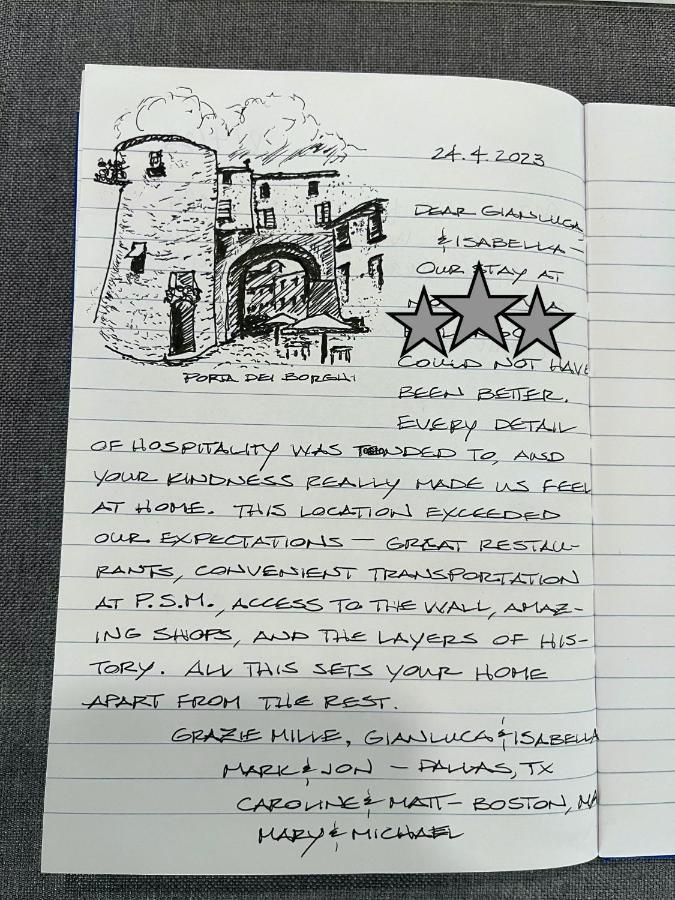 24.4.2023
DEAR GIANLUCA
& ISABELLA –
OUR STAY AT
COULD NOT HAVE
PORTA DEI BORGHI
BEEN BETTER.
EVERY DETAIL
OF HOSPITALITY WAS TENDED TO, AND
YOUR KINDNESS REALLY MADE US FEEL
AT HOME. THIS LOCATION EXCEEDED
OUR EXPECTATIONS – GREAT RESTAU-
RANTS, CONVENIENT TRANSPORTATION
AT P.S.M., ACCESS TO THE WALL, AMAZ-
ING SHOPS, AND THE LAYERS OF HIS-
TORY. ALL THIS SETS YOUR HOME
APART FROM THE REST.
GRAZIE MILLE, GIANLUCA & ISABELLA
MARK & JON – DALLAS, TX
CAROLINE & MATT – BOSTON, MA
MARY & MICHAEL